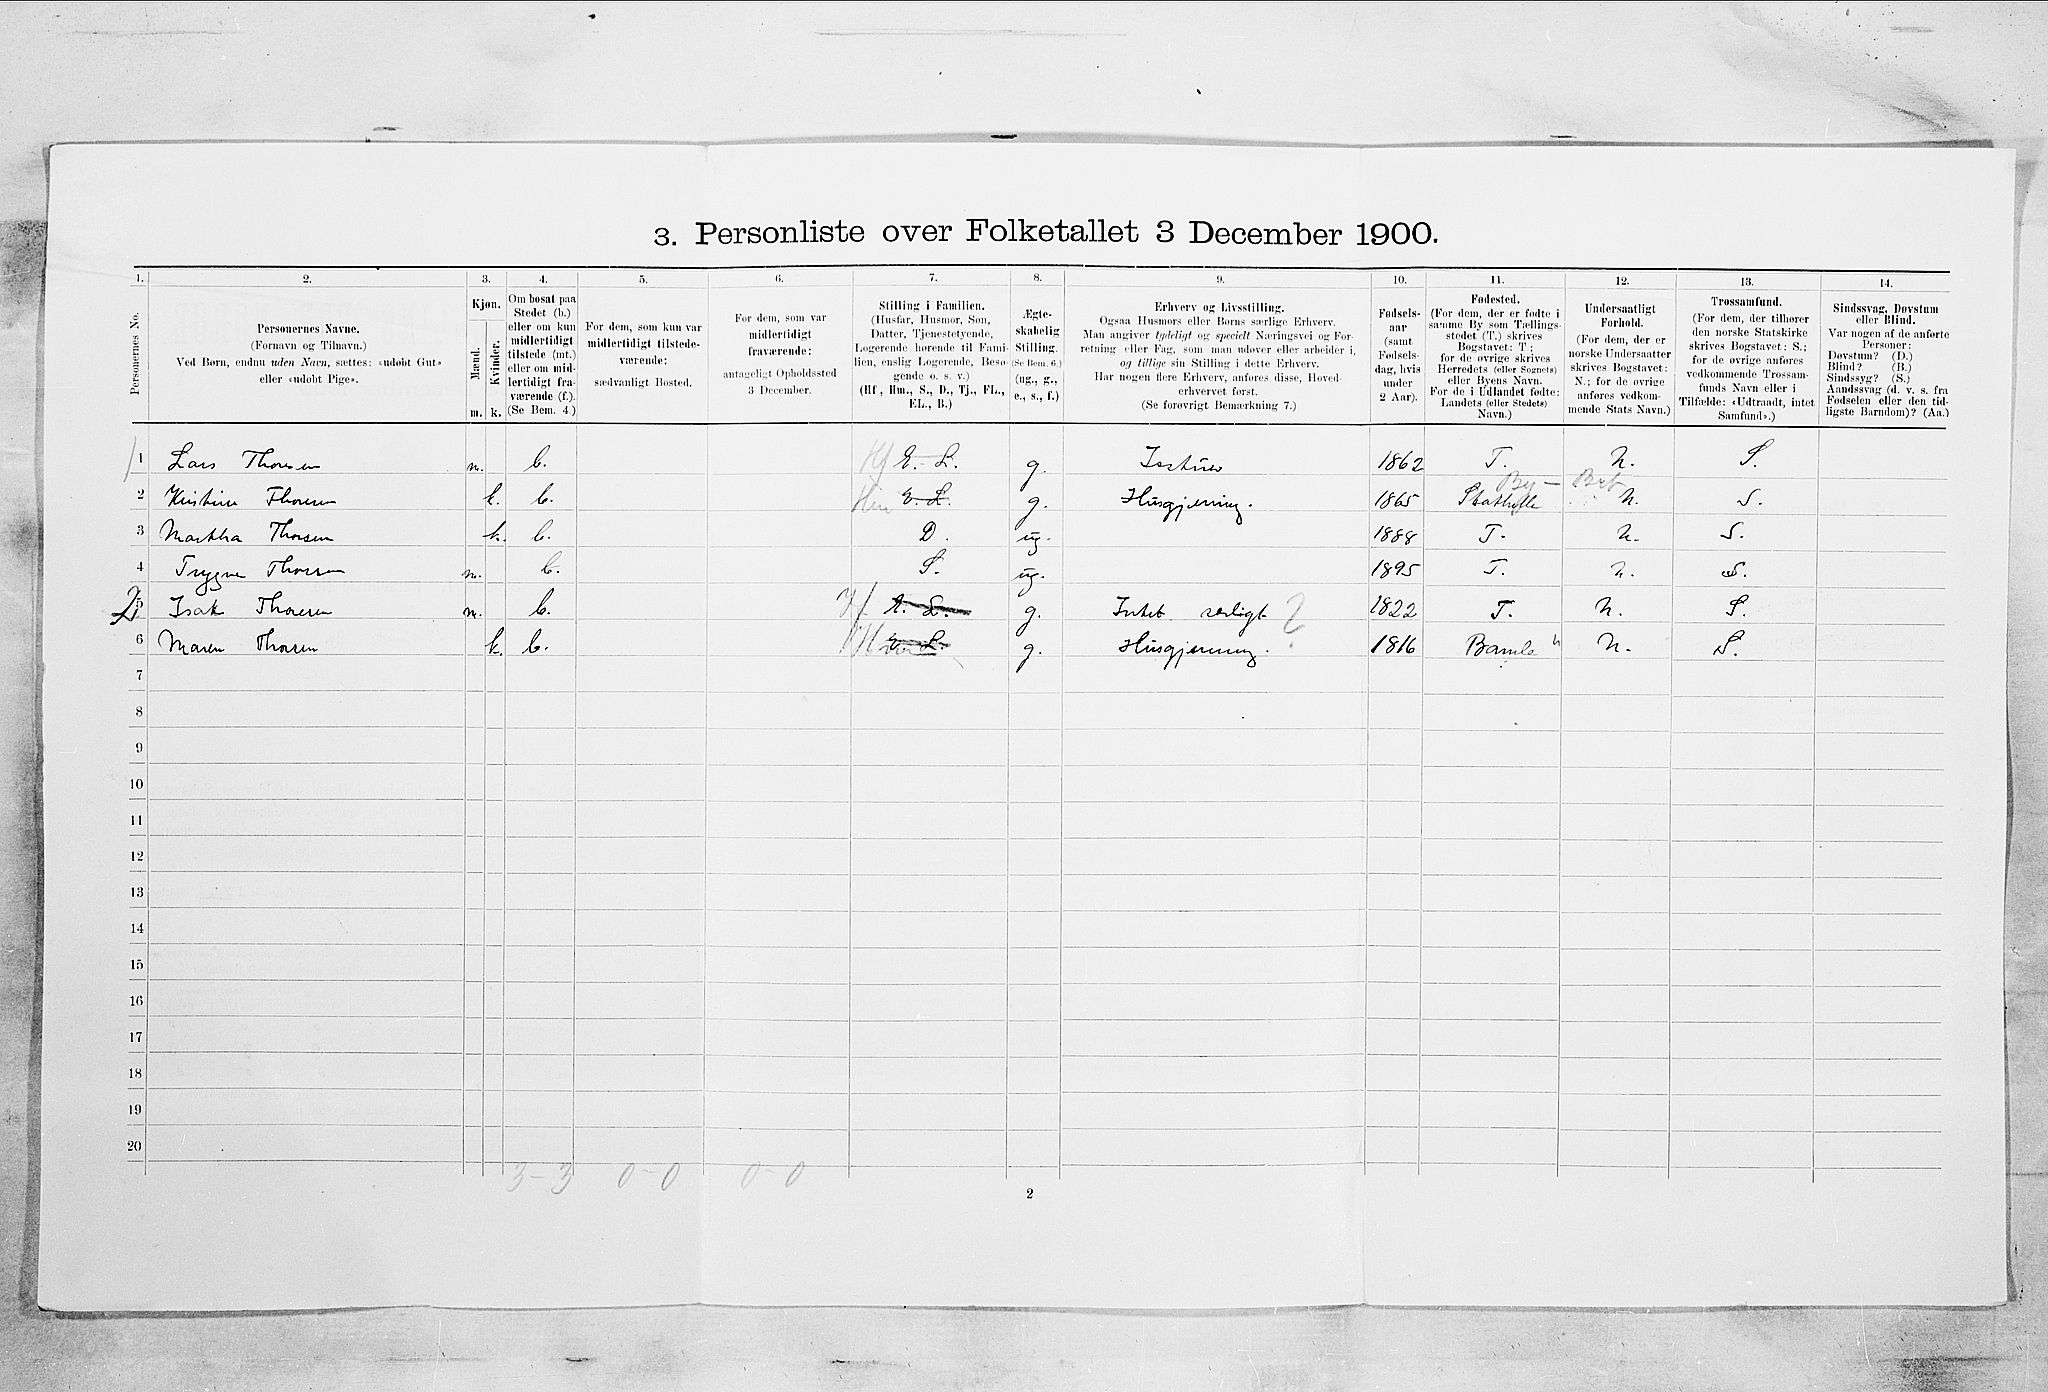 3. Personliste over Folketallet 3 December 1900.
1. 2. 3. 4. 5. 6. 7. 8. 9. 10. 11. 12. 13. 14.
Personernes No.
Personernes Navne.
(Fornavn og Tilnavn.)
Ved Børn, endnu uden Navn, sættes: «udøbt Gut»
eller «udøbt Pige».
Kjøn.
Mænd.
Kvinder.
m. k.
Om bosat paa
Stedet (b.)
eller om kun
midlertidigt
tilstede (mt.)
eller om mid-
lertidigt fra-
værende (f.).
(Se Bem. 4.)
For dem, som kun var
midlertidigt tilstede-
værende:
sædvanligt Bosted.
For dem, som var
midlertidigt
fraværende:
antageligt Opholdssted
3 December.
Stilling i Familien.
(Husfar, Husmor, Søn,
Datter, Tjenestetyende,
Logerende hørende til Fami-
lien, enslig Logerende, Besø-
gende o. s. v.)
(Hf., Hm., S., D., Tj., FL.,
EL., B.)
Ægte-
skabelig
Stilling.
(Se Bem. 6.)
(ug., g.,
e., s., f.)
Erhverv og Livsstilling.
Ogsaa Husmors eller Børns særlige Erhverv.
Man angiver tydeligt og specielt Næringsvei og For-
retning eller Fag, som man udøver eller arbeider i,
og tillige sin Stilling i dette Erhverv.
Har nogen flere Erhverv, anføres disse, Hoved-
erhvervet først.
(Se forøvrigt Bemærkning 7.)
Fødsels-
aar
(samt
Fødsels-
dag, hvis
under
2 Aar).
Fødested.
(For dem, der er fødte i
samme By som Tællings-
stedet (T.) skrives
Bogstavet: T;
for de øvrige skrives
Herredets (eller Sognets)
eller Byens Navn.
For de i Udlandet fødte:
Landets (eller Stedets)
Navn.)
Undersaatligt
Forhold.
(For dem, der er
norske Undersaatter
skrives Bogstavet:
N.; for de øvrige
anføres vedkom-
mende Stats Navn.)
Trossamfund.
(For dem, der tilhører
den norske Statskirke
skrives Bogstavet: S.;
for de øvrige anføres
vedkommende Trossam-
funds Navn eller i
Tilfælde: «Udtraadt, intet
Samfund».)
Sindssvag, Døvstum
eller Blind.
Var nogen af de anførte
Personer:
Døvstum? (D.)
Blind? (B.)
Sindssyg? (S.)
Aandssvag (d. v. s. fra
Fødselen eller den tid-
ligste Barndom)? (Aa.)
1 Lars Thorsen m. b. Hf E. L. g. 1862 T. N. S.
2 Kristine Thorsen k. b. Hm E. L. g. Husgjerning. 1865 Stathelle N. S.
3 Martha Thorsen k. b. D. ug. 1888 T. N. S.
4 Trygve Thorsen m. b. S. ug. 1895 T. N. S.
2 5 Isak Thorsen m. b. Hf E. L. g. Intet særligt ? 1822 T. N. S.
6 Maren Thorsen k. b. Hm E. L. g. Husgjerning. 1816 Bamle N. S.
7
8
9
10
11
12
13
14
15
16
17
18
19
20
3-3 0-0 0-0
2